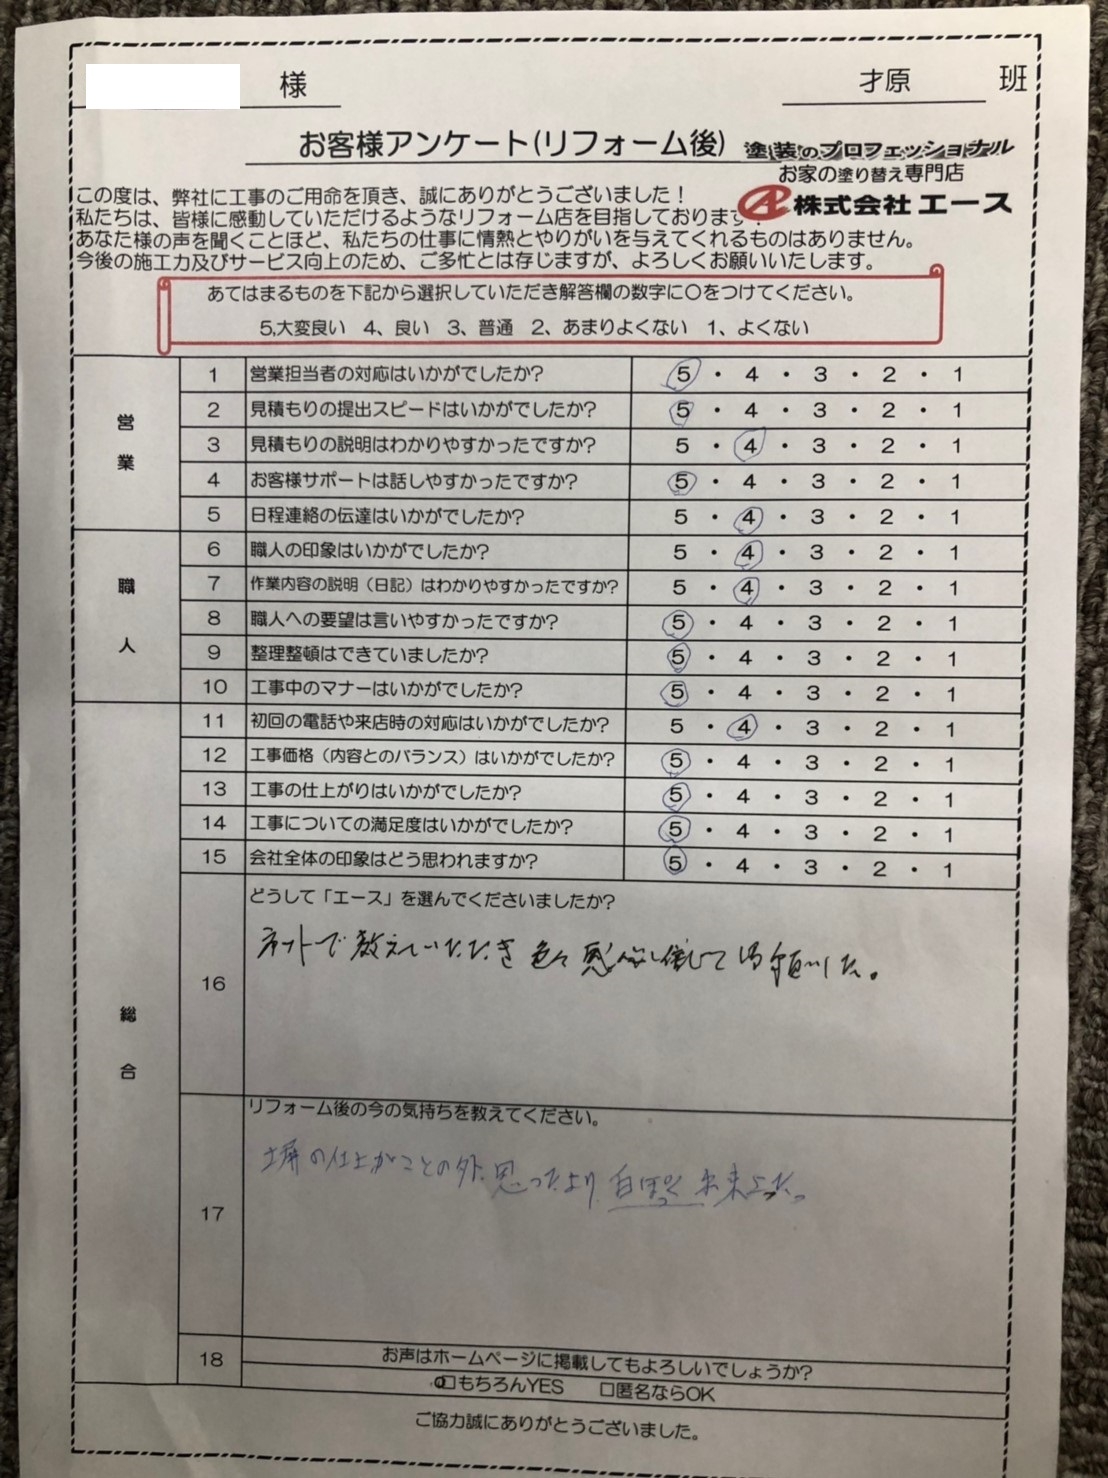 様
才原 班
お客様アンケート(リフォーム後)
塗装のプロフェッショナル
お家の塗り替え専門店
株式会社エース
この度は、弊社に工事のご用命を頂き、誠にありがとうございました！
私たちは、皆様に感動していただけるようなリフォーム店を目指しております！
あなた様の声を聞くことほど、私たちの仕事に情熱とやりがいを与えてくれるものはありません。
今後の施工力及びサービス向上のため、ご多忙とは存じますが、よろしくお願いいたします。
あてはまるものを下記から選択していただき解答欄の数字に〇をつけてください。
5,大変良い 4、良い 3、普通 2、あまりよくない 1、よくない
営業
1 営業担当者の対応はいかがでしたか？ 5・4・3・2・1
2 見積もりの提出スピードはいかがでしたか？ 5・4・3・2・1
3 見積もりの説明はわかりやすかったですか？ 5・4・3・2・1
4 お客様サポートは話しやすかったですか？ 5・4・3・2・1
5 日程連絡の伝達はいかがでしたか？ 5・4・3・2・1
職人
6 職人の印象はいかがでしたか？ 5・4・3・2・1
7 作業内容の説明（日記）はわかりやすかったですか？ 5・4・3・2・1
8 職人への要望は言いやすかったですか？ 5・4・3・2・1
9 整理整頓はできていましたか？ 5・4・3・2・1
10 工事中のマナーはいかがでしたか？ 5・4・3・2・1
総合
11 初回の電話や来店時の対応はいかがでしたか？ 5・4・3・2・1
12 工事価格（内容とのバランス）はいかがでしたか？ 5・4・3・2・1
13 工事の仕上がりはいかがでしたか？ 5・4・3・2・1
14 工事についての満足度はいかがでしたか？ 5・4・3・2・1
15 会社全体の印象はどう思われますか？ 5・4・3・2・1
16 どうして「エース」を選んでくださいましたか？
ネットで教えていただき色々感心し信じて
17 リフォーム後の今の気持ちを教えてください。
塀の仕上がことの外、思ったより白ぽく出来上った。
18 お声はホームページに掲載してもよろしいでしょうか？
□もちろんYES □匿名ならOK
ご協力誠にありがとうございました。